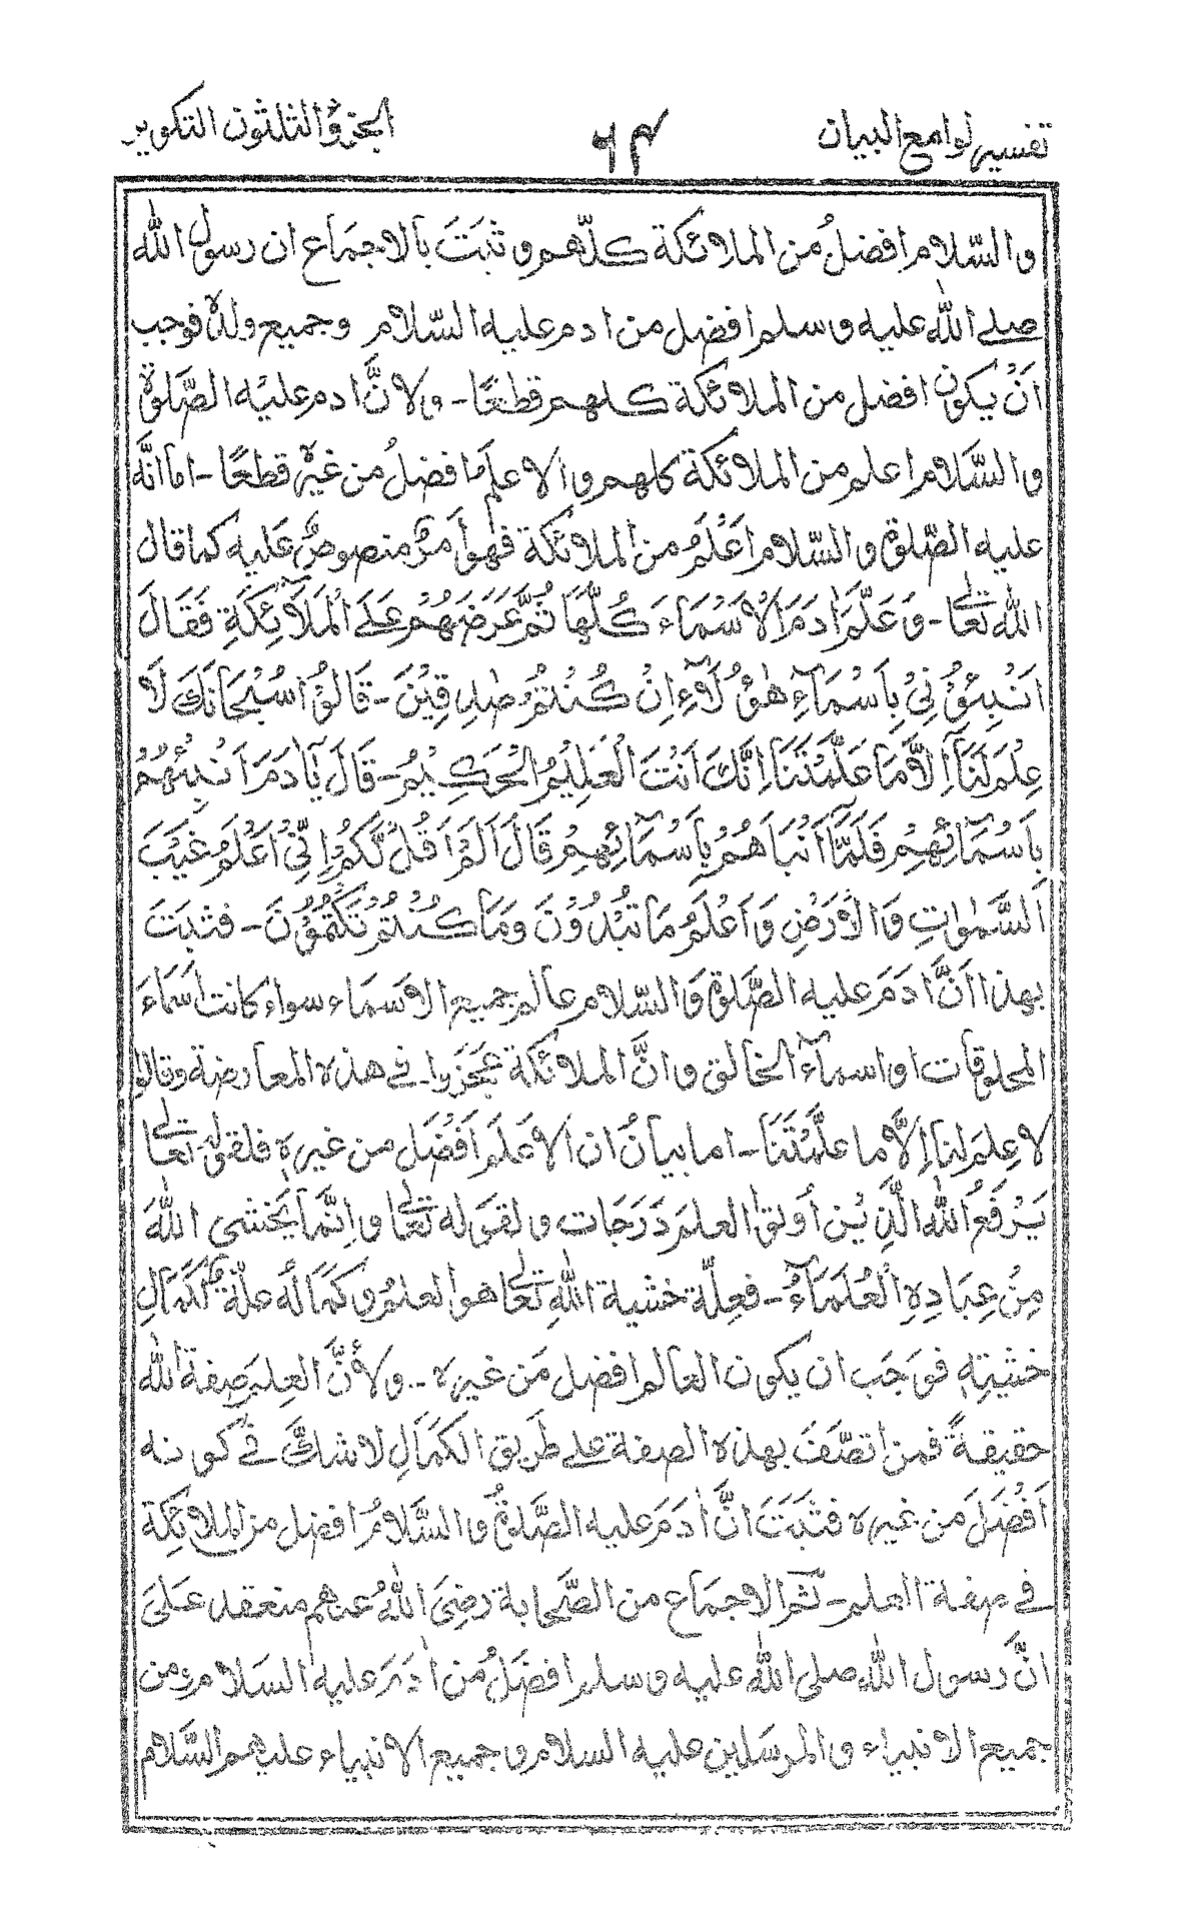 تفسير لوامع البيان ٦٤ الجزؤ الثلثون التكوير
والسّلام افضلُ من الملائكة كلّهم و ثبَتَ بالاجمَاع ان رسول الله
صلے اللّٰه عليه وسلم افضل من ادم عليه السّلام وجميع ولدہ فوجب
اَنْ يكون افضل من الملائكة كلهم قطعًا - ولانَّ ادم عليْه الصَّلوة
والسَّلام اعلم من الملائكة كلهم والاعلَم افضلُ من غيرہ قطعًا - اما انَّه
عليه الصّلوة والسّلام اَعْلَمُ من الملائكة فهواَمرٌ منصوصٌ عَليه كما قال
اللّٰه تعالٰے - وَعَلَّمَ اٰدَمَ الْاَسْمَاءَ كُلَّهَا ثُمَّ عَرَضَهُمْ عَلَے الْمَلَآئِكَةِ فَقَالَ
اَنْبِئُوْنِيْ بِاَسْمَآءِ هٰؤُلَآءِ اِنْ كُنْتُمْ صٰدِقِيْنَ - قَالُوْا سُبْحَانَكَ لَا
عِلْمَ لَنَآ اِلَّا مَا عَلَّمْتَنَا اِنَّكَ اَنْتَ الْعَلِيْمُ الْحَكِيْمُ - قَالَ يَآ اٰدَمَ اَنْبِئْهُمْ
بِاَسْمَآئِهِمْ فَلَمَّا اَنْبَاَهُمْ بِاَسْمَآئِهِمْ قَالَ اَلَمْ اَقُلْ لَّكُمْ اِنِّيْ اَعْلَمُ غَيْبَ
السَّمٰوٰتِ وَالْاَرْضِ وَاَعْلَمُ مَا تُبْدُوْنَ وَمَا كُنْتُمْ تَكْتُمُوْنَ - فثبَتَ
بهذا اَنَّ اٰدَمَ عليه الصَّلوة وَالسّلام عالم جميع الاسمَاء سواء كانت اسمَاءَ
المخلوقات او اسماۤء الخالق وانَّ الملائكة عجَزوا فے هذہ المعارضة وقالوا
لا عِلمَ لنا اِلَّا ما علَّمْتَنَا - اما بيانُ ان الاعْلَم اَفْضَل من غيرہ فلقوله تعالٰے
يَرْفَعُ اللّٰه الَّذِيْن أوتوا العلمَ دَرَجَات ولقوله تعالٰے وانَّما يَخشى اللّٰهَ
مِنْ عِبَادِهِ الْعُلَمَآءُ - فعِلّة خشية اللّٰهِ تعالٰے هو العلمُ وكمَالُه علّةٌ لكمَالِ
خشْيتِه فوَجَب ان يكون العالم افضل مَن غيرہ - ولأنَّ العِلم صفة اللّٰه
حقيقةً فمن اتصَّفَ بهذہ الصفة علے طَريق الكمَالِ لا شكَّ فے كونه
اَفْضَلَ من غيرہ فثبَتَ انَّ اٰدَمَ عليه الصَّلوةُ والسَّلامُ افضل من الملائِكة
فے صفة العلم - ثم الاجمَاع من الصَّحابة رضِىَ اللّٰهُ عنهم منعقد عَلىٰ
انَّ رَسول اللّٰهِ صلى اللّٰهُ عليه وسلم افضَلُ من اٰدَمَ عَليه السَلام ومن
جميع الانبياء والمرسَلين عليه السلام وجميع الانبياء عليهم السَّلام